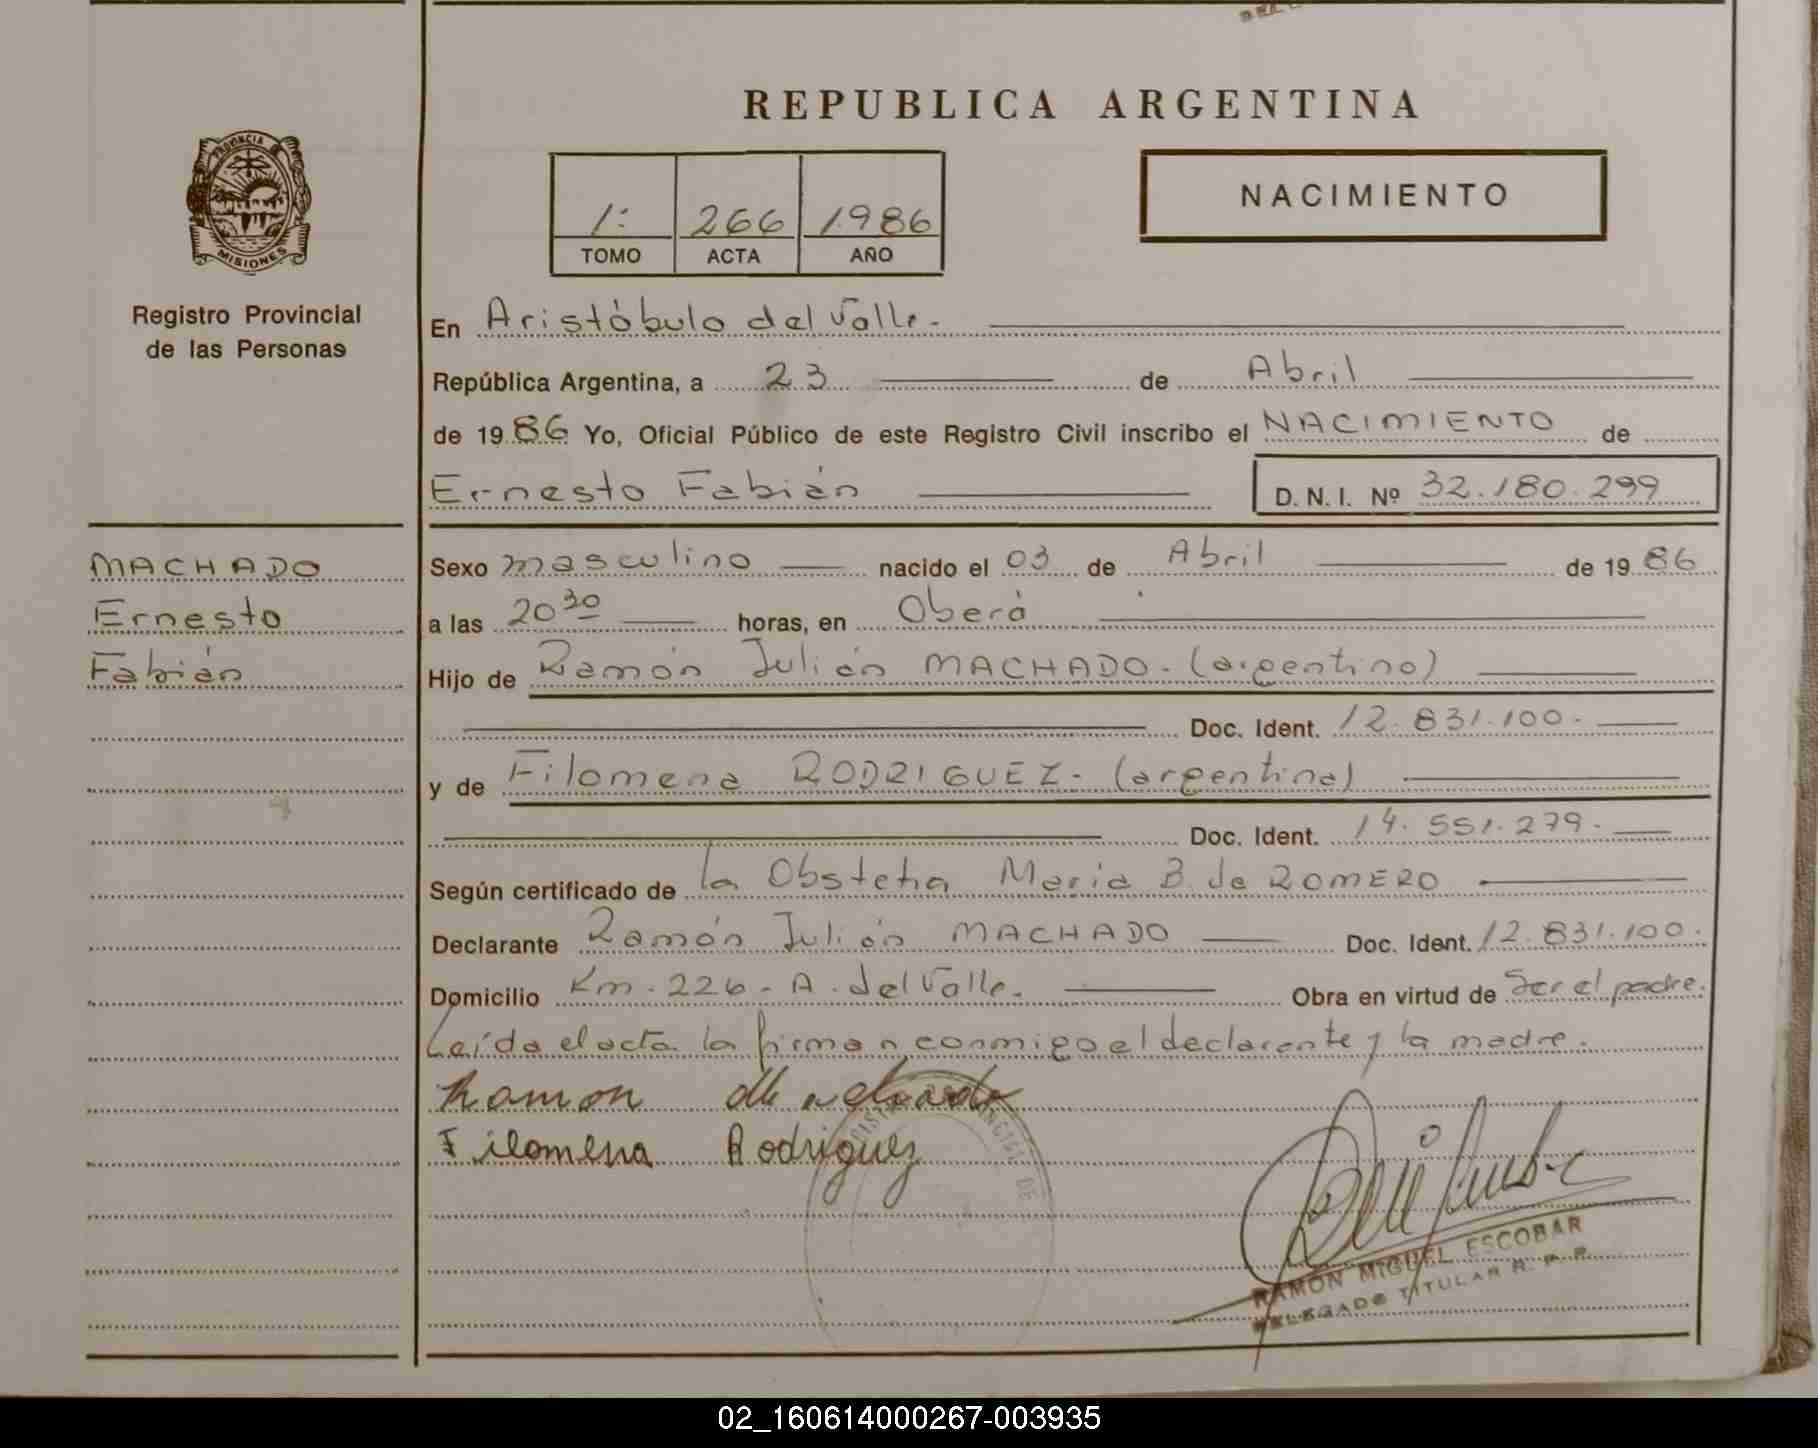 REPUBLICA ARGENTINA
PROVINCIA DE
MISIONES
Registro Provincial
de las Personas
1: 266 1986
TOMO ACTA AÑO
NACIMIENTO
En Aristóbulo del Valle.
República Argentina, a 23 de Abril
de 1986 Yo, Oficial Público de este Registro Civil inscribo el NACIMIENTO de
Ernesto Fabián D. N. I. Nº 32.180.299
MACHADO
Ernesto
Fabián
Sexo masculino nacido el 03 de Abril de 1986
a las 20 30 horas, en Oberá
Hijo de Ramón Julián MACHADO - (argentino)
Doc. Ident. 12.831.100.
y de Filomena RODRIGUEZ - (argentina)
Doc. Ident. 14.551.279.
Según certificado de la Obstetra Maria B. de ROMERO
Declarante Ramón Julián MACHADO Doc. Ident. 12.831.100.
Domicilio Km. 226 - A. del Valle. Obra en virtud de Ser el padre.
Leída el acta la firman conmigo el declarante y la madre.
Ramon Machado
Filomena Rodriguez
RAMON MIGUEL ESCOBAR
DELEGADO TITULAR R. P. P.
02_160614000267-003935